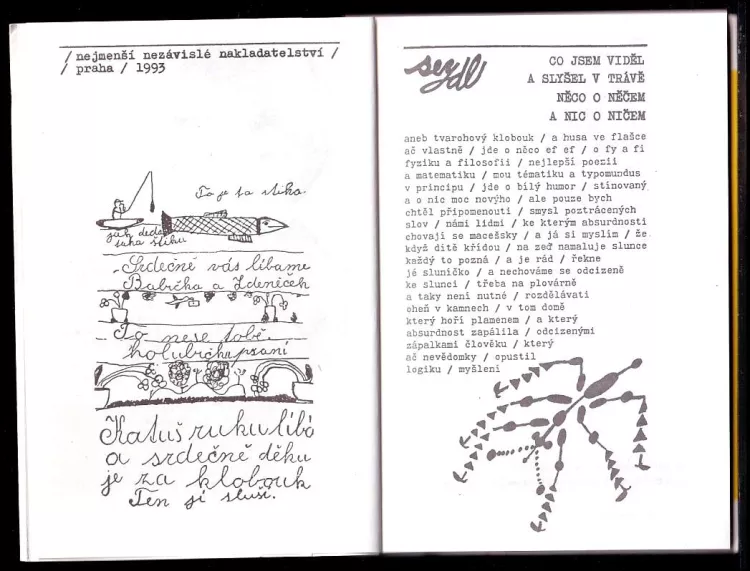 / nejmenší nezávislé nakladatelství /
/ praha / 1993
To je ta štika.
jak děda
suka štiku
Srdečně vás líbáme
Babička a Zdeněček
To nese tobě
holubička psaní
Katuš ruku líbá
a srdečně děku
je za klobouk
Ten jí sluší.
sezdl
CO JSEM VIDĚL
A SLYŠEL V TRÁVĚ
NĚCO O NĚČEM
A NIC O NIČEM
aneb tvarohový klobouk / a husa ve flašce
ač vlastně / jde o něco ef ef / o fy a fi
fyziku a filosofii / nejlepší poezii
a matematiku / mou tématiku a typomundus
v principu / jde o bílý humor / stínovaný
a o nic moc novýho / ale pouze bych
chtěl připomenouti / smysl poztrácených
slov / námi lidmi / ke kterým absurdnosti
chovají se macešsky / a já si myslím / že
když dítě křídou / na zeď namaluje slunce
každý to pozná / a je rád / řekne
jé sluničko / a nechováme se odcizeně
ke slunci / třeba na plovárně
a taky není nutné / rozdělávati
oheň v kamnech / v tom domě
který hoří plamenem / a který
absurdnost zapálila / odcizenými
zápalkami člověku / který
ač nevědomky / opustil
logiku / myšlení